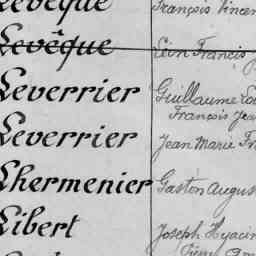 Levêque François Vincen
Levêque Léin Francis
Leverrier Guillaume Lou
François Jea
Leverrier Jean Marie Fr
Lhermenier Gaston Augus
Libert Joseph Hyacin